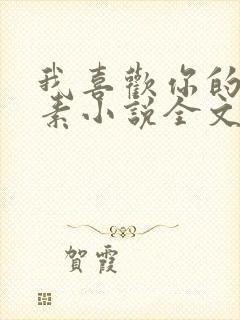 我喜歡你的
素小說全文
賀霞